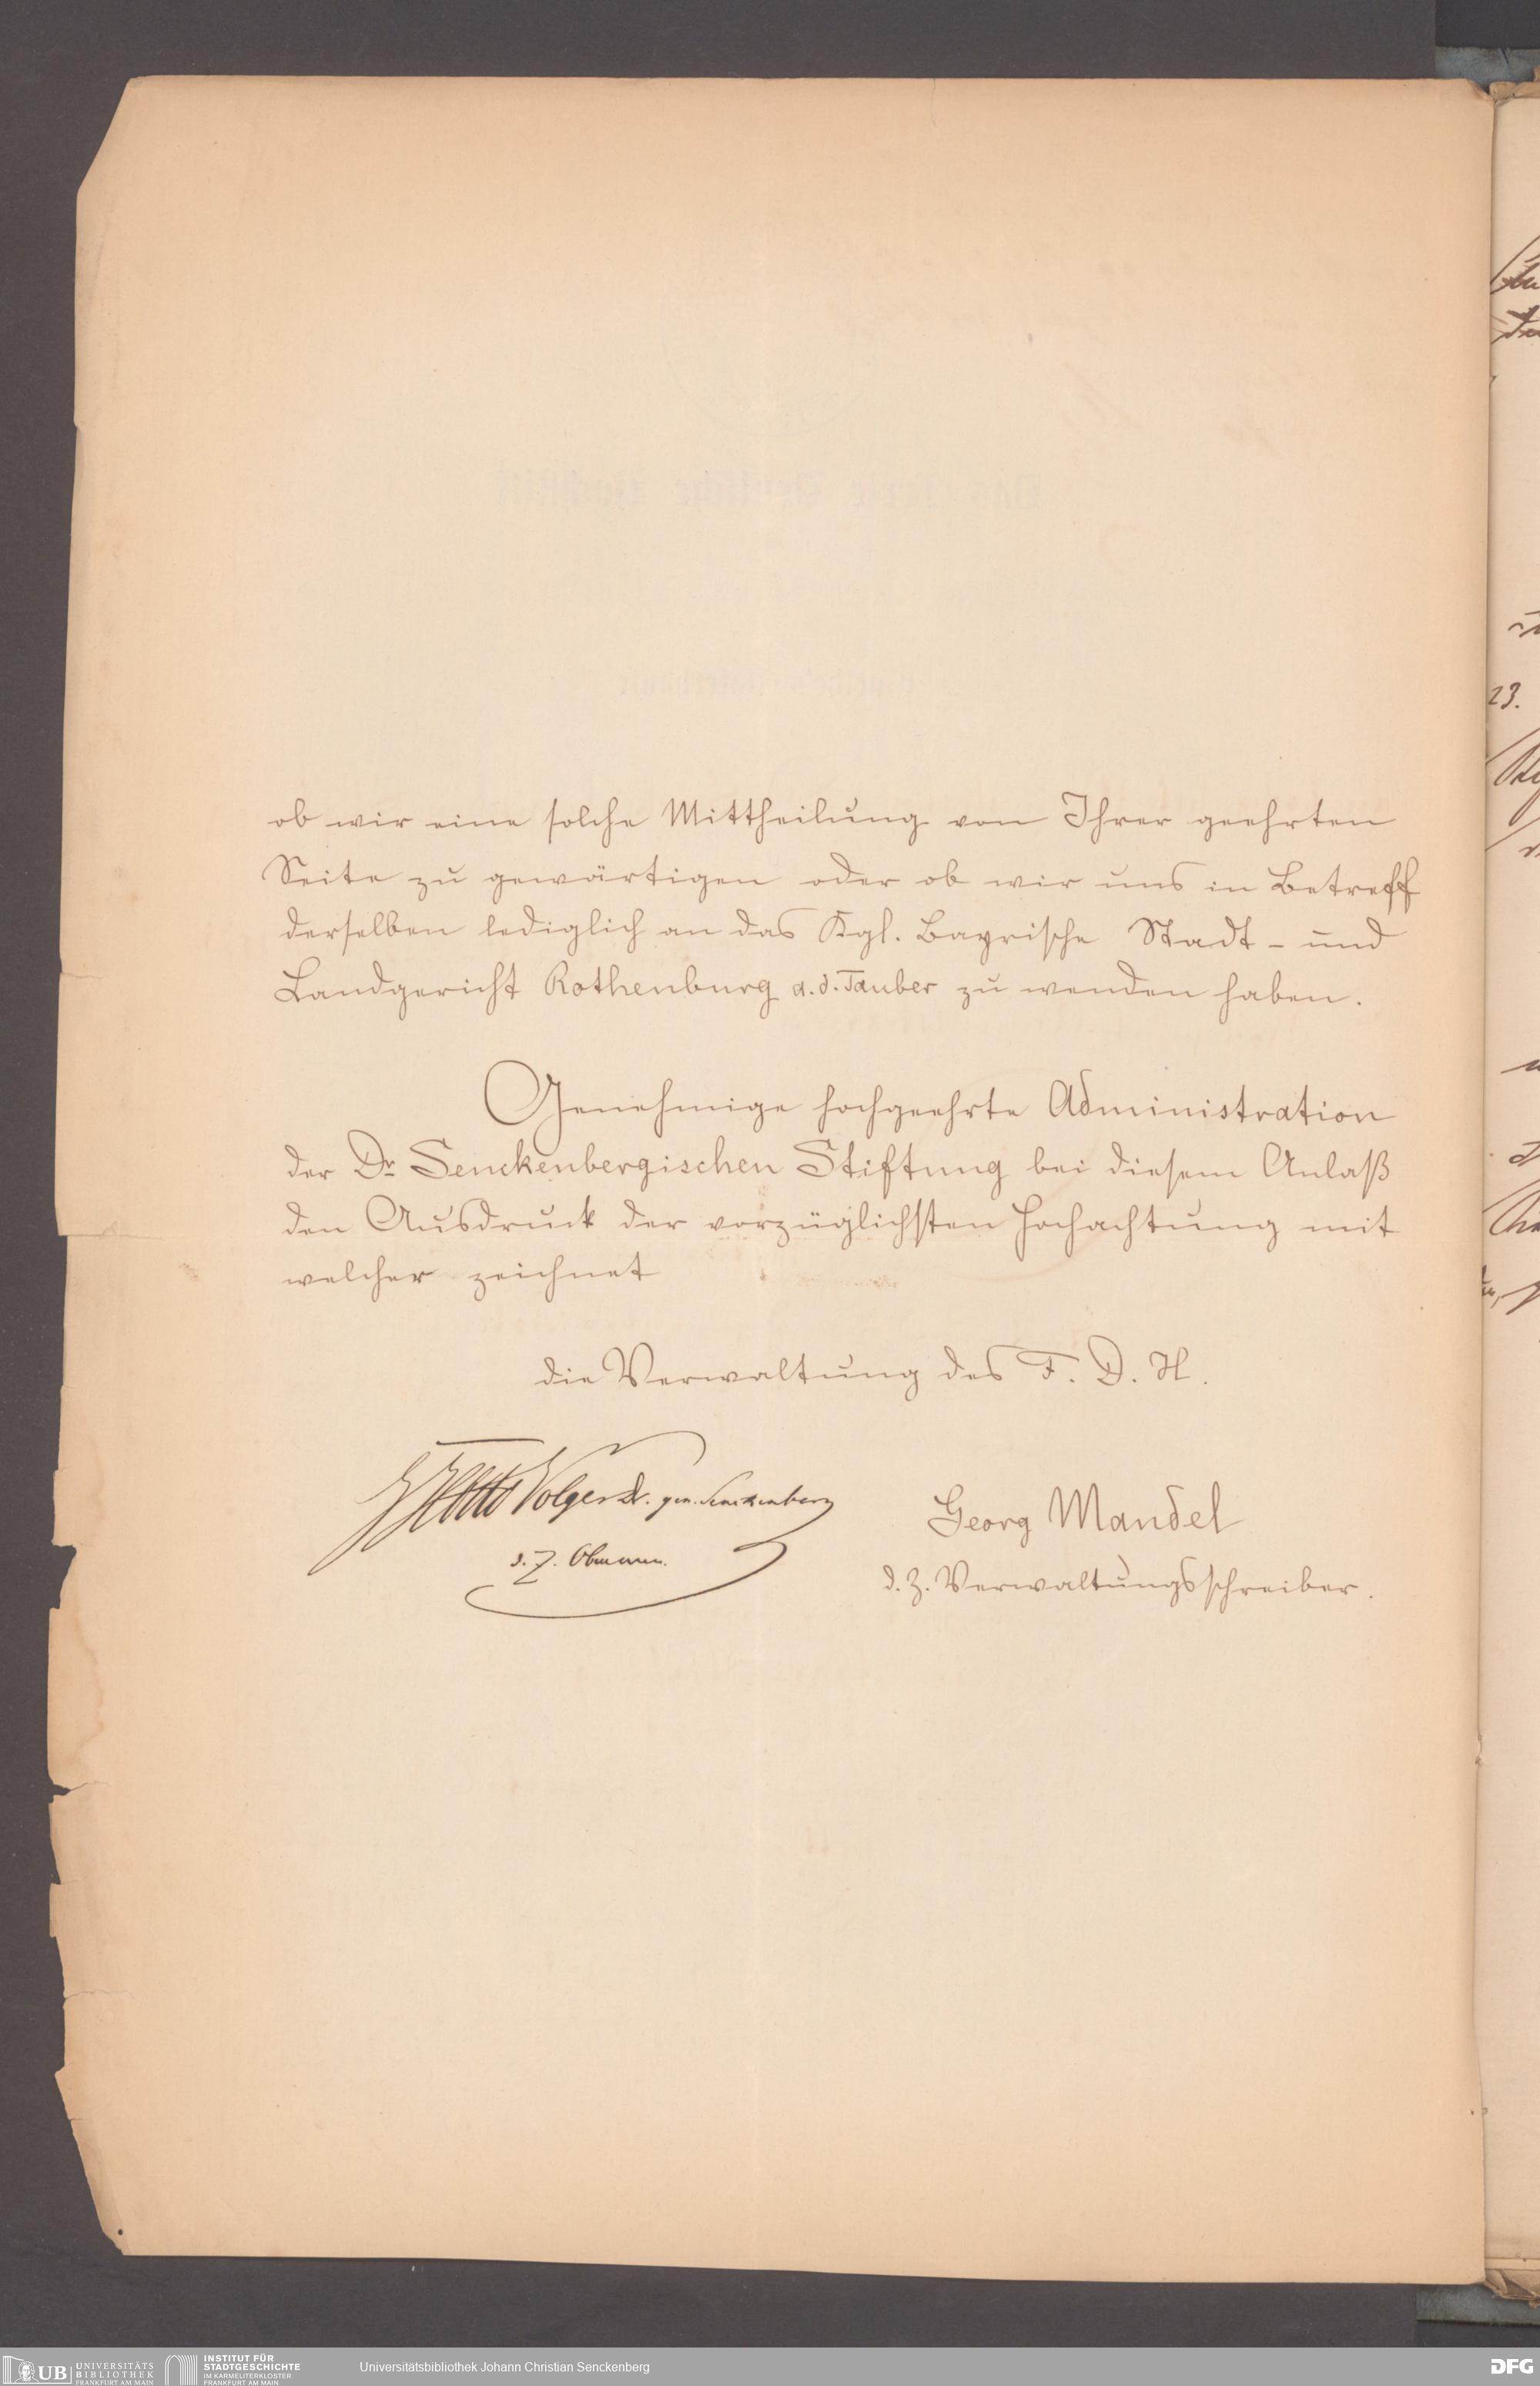 ob wir eine solche Mittheilung von Ihrer geehrten
Seite zu gewärtigen oder ob wir uns in Betreff
derselben lediglich an das Kgl. Bayrische Stadt- und
Landgericht Rothenburg a. d. Tauber zu wenden haben.
Genehmige hochgeehrte Administration
der Dr. Senckenbergischen Stiftung bei diesem Anlaß
den Ausdruck der vorzüglichsten Hochachtung mit
welcher zeichnet
die Verwaltung des F. D. H.
Otto Volger Dr. gen. Senckenberg
d. Z. Obmann.
Georg Mandel
d. Z. Verwaltungsschreiber.
23.
UB UNIVERSITÄTS BIBLIOTHEK FRANKFURT AM MAIN
INSTITUT FÜR STADTGESCHICHTE IM KARMELITERKLOSTER FRANKFURT AM MAIN
Universitätsbibliothek Johann Christian Senckenberg
DFG